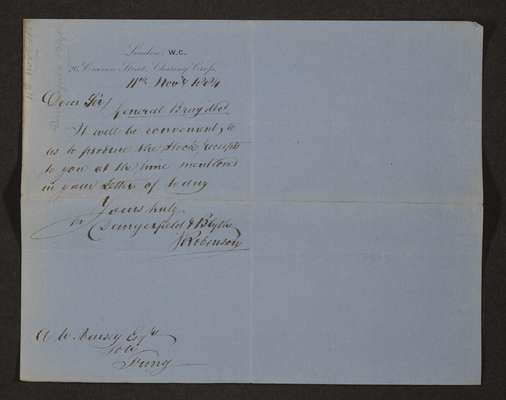 London, W.C.
26 Craven Street, Charing Cross
11th Novr 1884
Dear Sir/
General Bray decd
It will be convenient to
us to produce the Stock receipts
to you at the time mentioned
in your letter of today
Yours truly
Dangerfield & Blythe
Robinson
Esqre
Tring